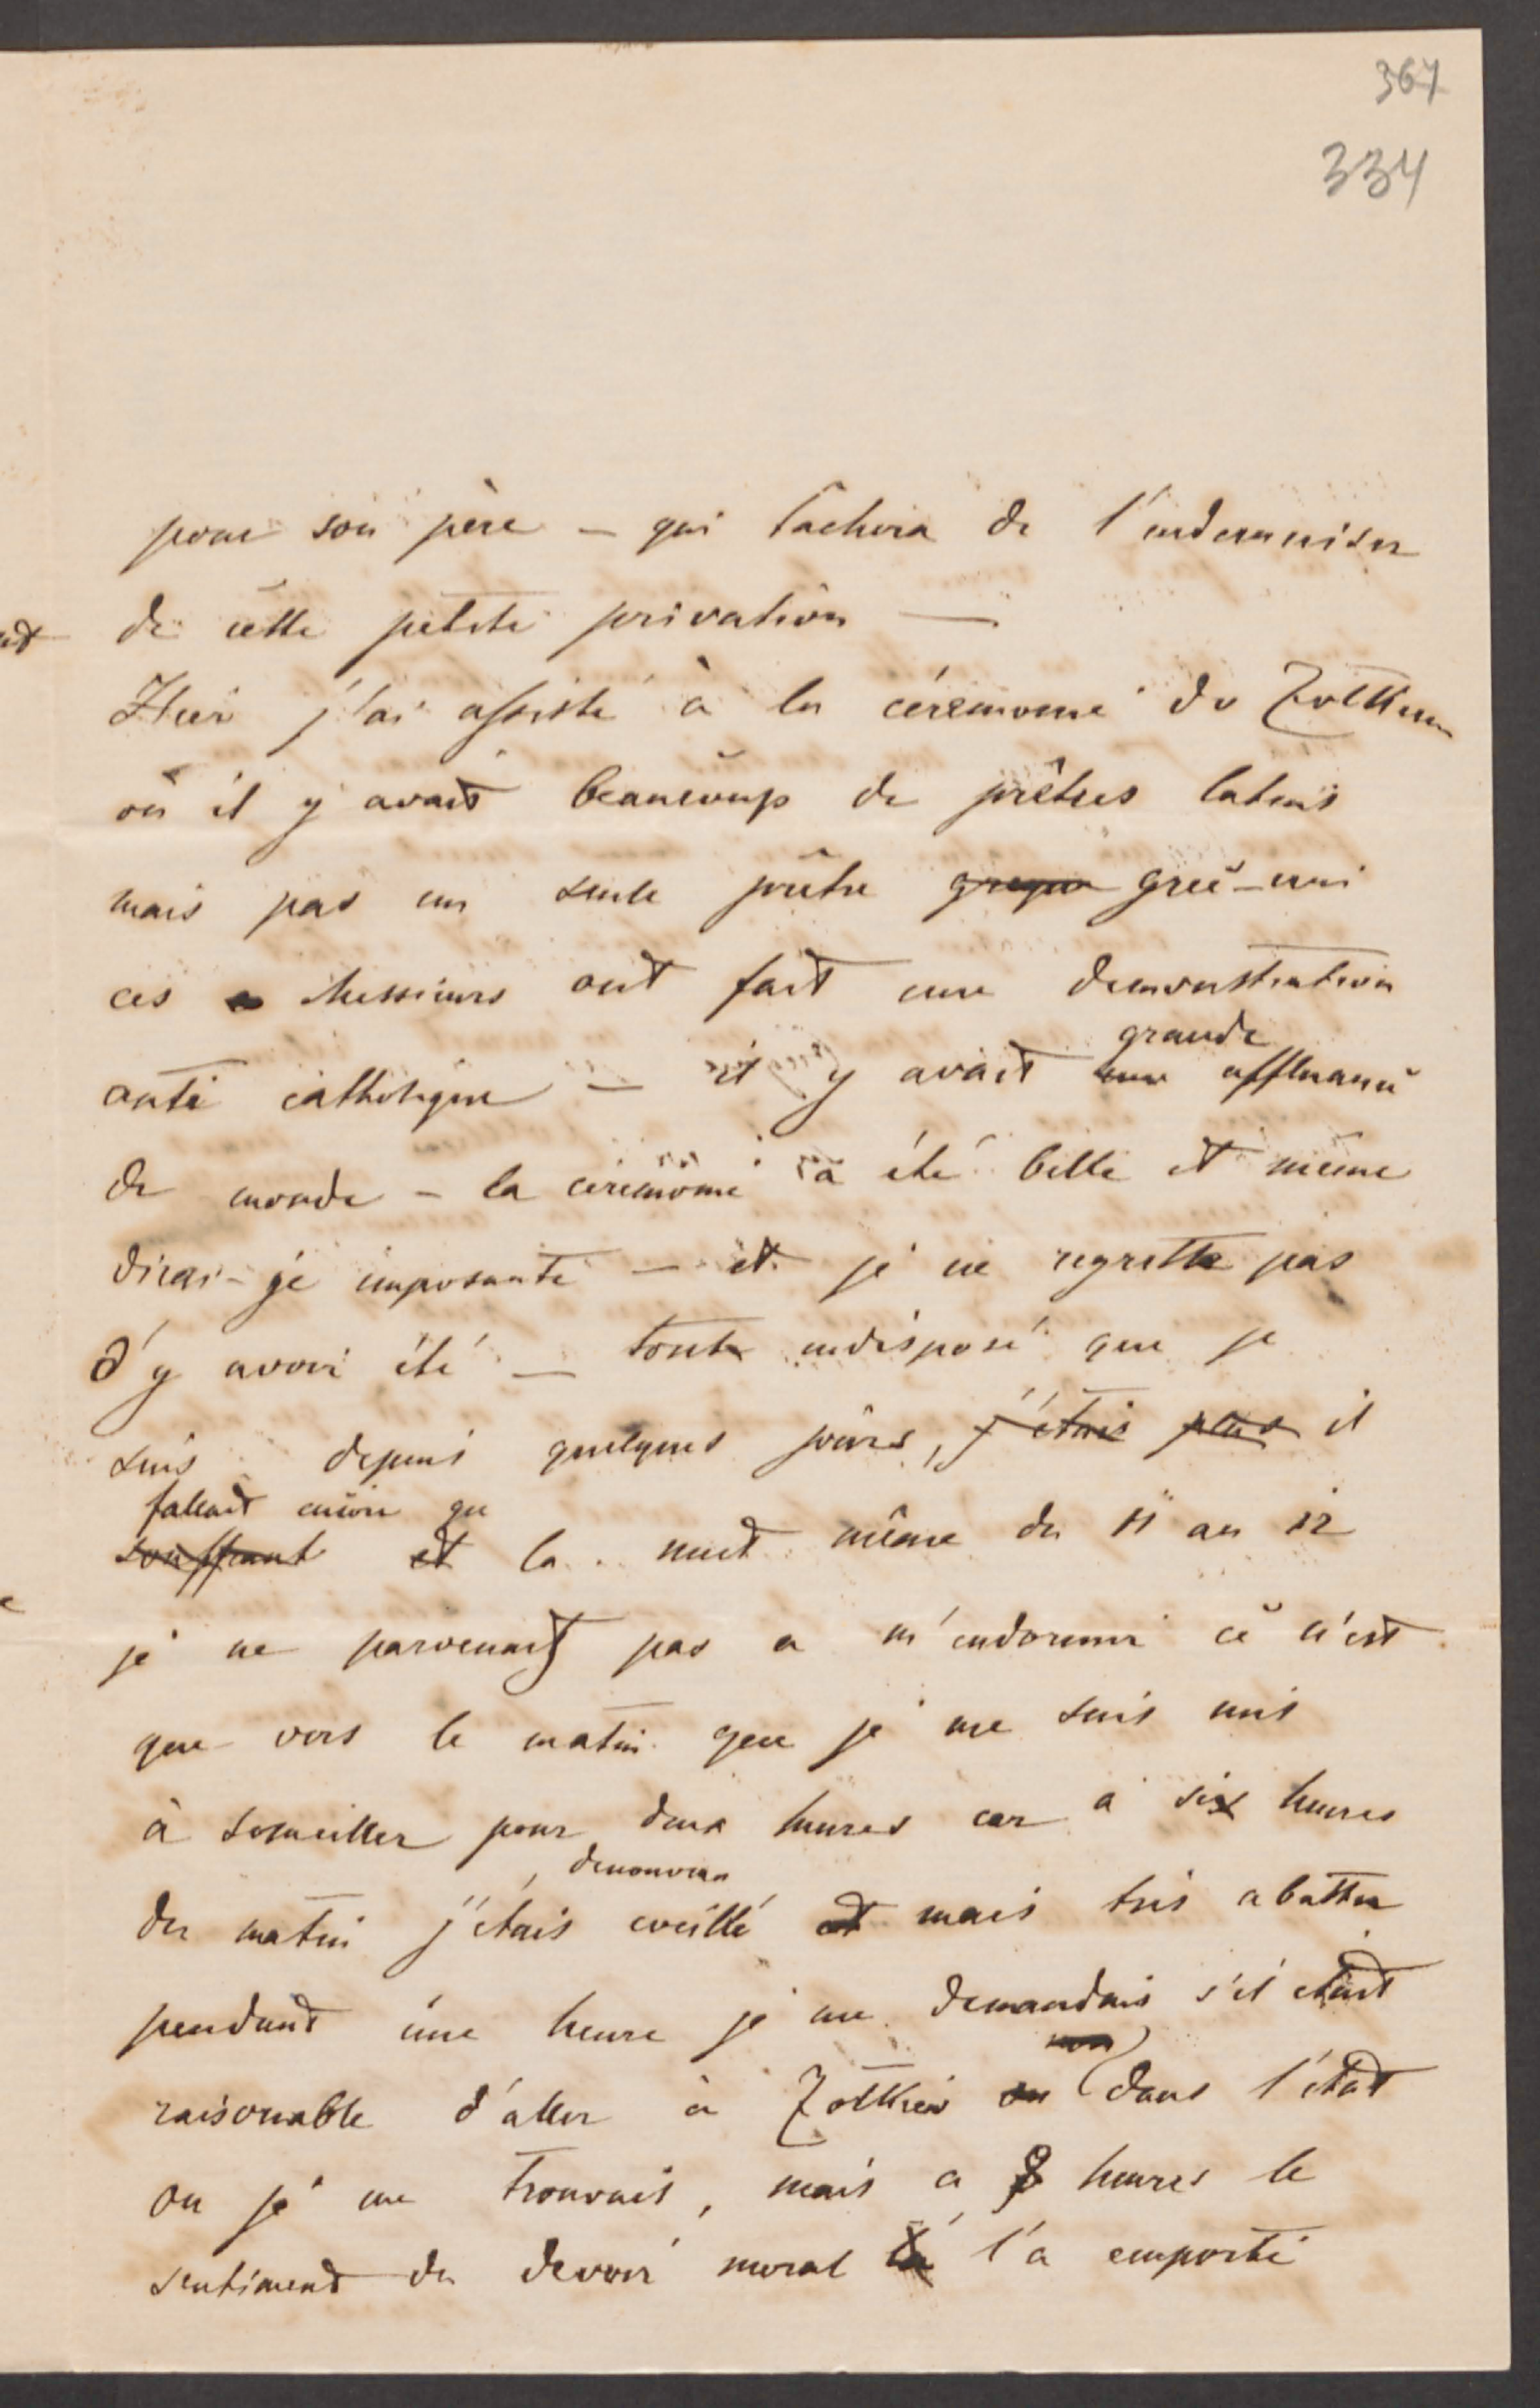 367
334
pour son père – qui tâchera de l'indemniser
de cette petite privation —
Hier j'ai assisté à la céremonie de Zolkiew
où il y avait beaucoup de prêtres latins
mais pas un seule prêtre grec-uni
ces Messieurs ont fait une demonstration
anti catholique – il y avait grande affluance
de monde – la céremonie a été belle et même
dirai-je imposante – et je ne regrette pas
d'y avoir été – tout indisposé que je
suis depuis quelques jours, j'étais plus il
fallait encore que
souffrant et la nuit même du 11 au 12
je ne parvenait pas a m'endormir ce n'est
que vers le matin que je me suis mis
à someiller pour deux heures car a six heures
denouveau
du matin j'étais eveillé et mais très abattu
pendant une heure je me demandais s'il était
non
raisonable d'aller à Zolkiew ou dans l'état
ou je me trouvais, mais a 8 heures le
sentiment du devoir moral l'a emporté